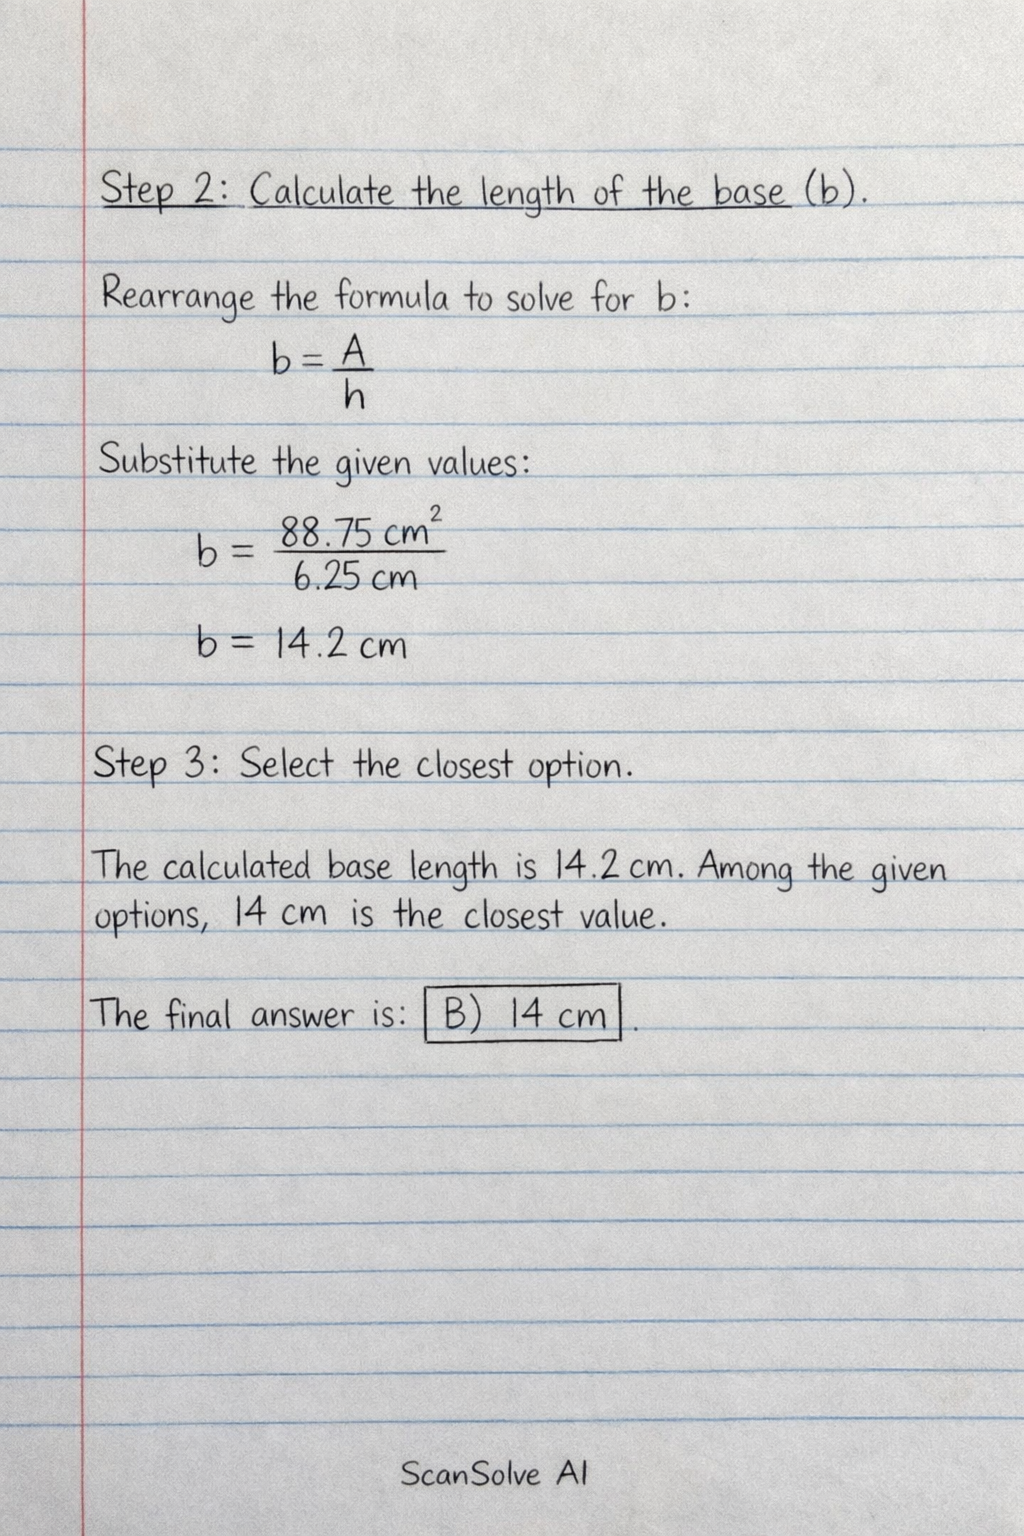 Step 2: Calculate the length of the base (b).
Rearrange the formula to solve for b:
b = A/h
Substitute the given values:
b = 88.75 cm²/6.25 cm
b = 14.2 cm
Step 3: Select the closest option.
The calculated base length is 14.2 cm. Among the given
options, 14 cm is the closest value.
The final answer is: B) 14 cm.
ScanSolve AI